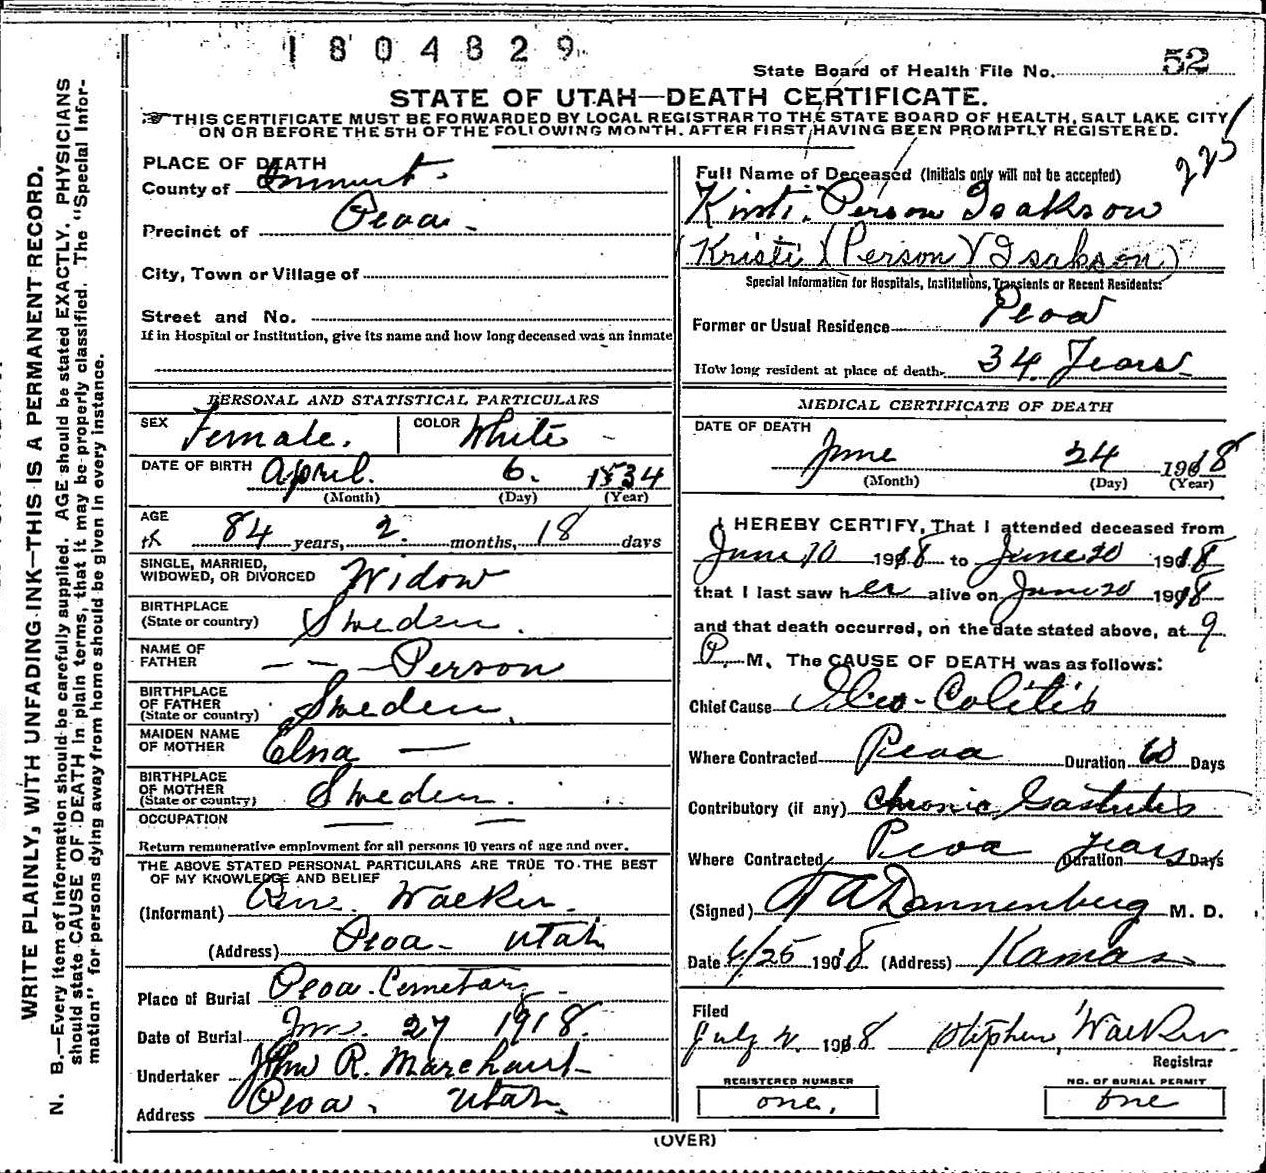 1804829
State Board of Health File No. 52
STATE OF UTAH—DEATH CERTIFICATE.
THIS CERTIFICATE MUST BE FORWARDED BY LOCAL REGISTRAR TO THE STATE BOARD OF HEALTH, SALT LAKE CITY
ON OR BEFORE THE 5TH OF THE FOLLOWING MONTH. AFTER FIRST HAVING BEEN PROMPTLY REGISTERED.
225
WRITE PLAINLY, WITH UNFADING INK—THIS IS A PERMANENT RECORD.
N. B.—Every item of Information should be carefully supplied. AGE should be stated EXACTLY. PHYSICIANS
should state CAUSE OF DEATH in plain terms, that it may be properly classified. The "Special Infor-
mation" for persons dying away from home should be given in every instance.
PLACE OF DEATH
County of Summit.
Precinct of Peoa.
City, Town or Village of
Street and No.
If in Hospital or Institution, give its name and how long deceased was an inmate
PERSONAL AND STATISTICAL PARTICULARS
SEX Female. COLOR White
DATE OF BIRTH April. 6. 1834
(Month) (Day) (Year)
AGE
84 years, 2. months, 18 days
SINGLE, MARRIED,
WIDOWED, OR DIVORCED Widow
BIRTHPLACE
(State or country) Sweden.
NAME OF
FATHER — — Person
BIRTHPLACE
OF FATHER
(State or country) Sweden.
MAIDEN NAME
OF MOTHER Elna —
BIRTHPLACE
OF MOTHER
(State or country) Sweden.
OCCUPATION — —
Return remunerative employment for all persons 10 years of age and over.
THE ABOVE STATED PERSONAL PARTICULARS ARE TRUE TO THE BEST
OF MY KNOWLEDGE AND BELIEF
(Informant) Walker.
(Address) Peoa- Utah
Place of Burial Peoa Cemetary
Date of Burial June. 27 1918.
Undertaker John R. Marchant
Address Peoa. Utah.
Full Name of Deceased (Initials only will not be accepted)
Kirsti. Person Isakson
(Kristi (Person) Isakson)
Special Information for Hospitals, Institutions, Transients or Recent Residents:
Former or Usual Residence Peoa
How long resident at place of death 34 Years
MEDICAL CERTIFICATE OF DEATH
DATE OF DEATH
June 24 1918
(Month) (Day) (Year)
I HEREBY CERTIFY, That I attended deceased from
June 10 1918 to June 20 1918
that I last saw her alive on June 20 1918
and that death occurred, on the date stated above, at 9
P. M. The CAUSE OF DEATH was as follows:
Chief Cause Ileo-Colitis
Where Contracted Peoa Duration 60 Days
Contributory (if any) Chronic Gastritis
Where Contracted Peoa Duration years Days
(Signed) A Dannenberg M. D.
Date 6/25 1918 (Address) Kamas
Filed
July 2. 1918 Stephen Walker
Registrar
REGISTERED NUMBER
one.
NO. OF BURIAL PERMIT
one
(OVER)